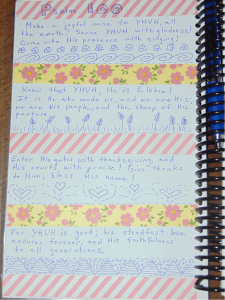 Psalm 100
Make a joyful noise to YHVH, all
the earth! Serve YHVH with gladness!
Come into His presence with singing!
Know that YHVH, He is Elohim!
It is He who made us, and we are His;
we are His people, and the sheep of His
pasture.
Enter His gates with thanksgiving, and
His courts with praise! Give thanks
to Him; bless His name!
For YHVH is good; his steadfast love
endures forever, and His faithfulness
to all generations.